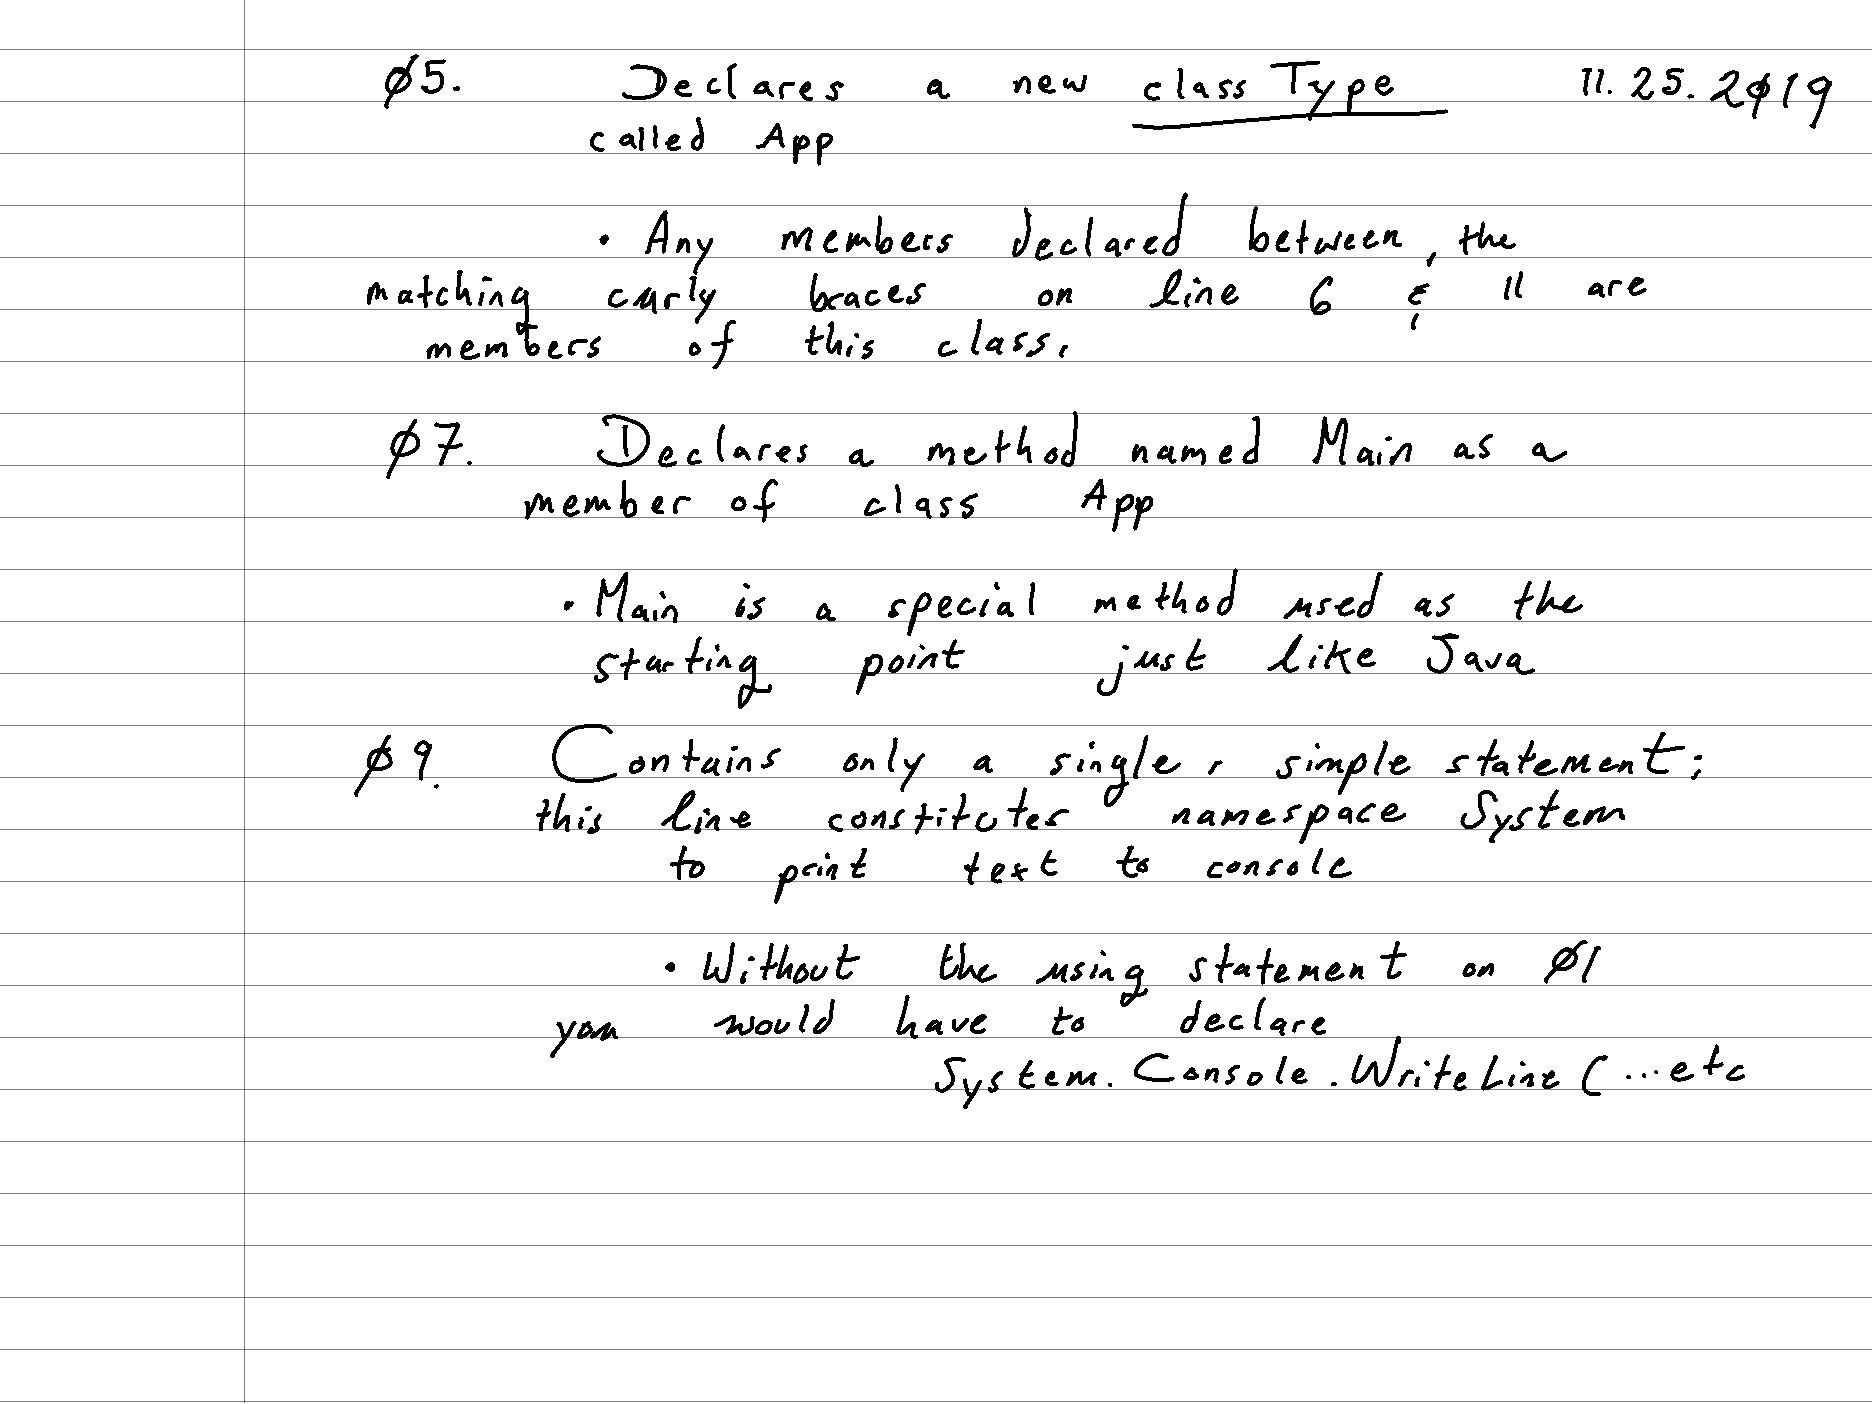 Ø5. Declares a new class Type 11.25.2019
called App
• Any members declared between, the
matching curly braces on line 6 & 11 are
members of this class.
Ø7. Declares a method named Main as a
member of class App
• Main is a special method used as the
starting point just like Java
Ø9. Contains only a single, simple statement;
this line constitutes namespace System
to print text to console
• Without the using statement on Ø1
you would have to declare
System.Console.WriteLine(...etc